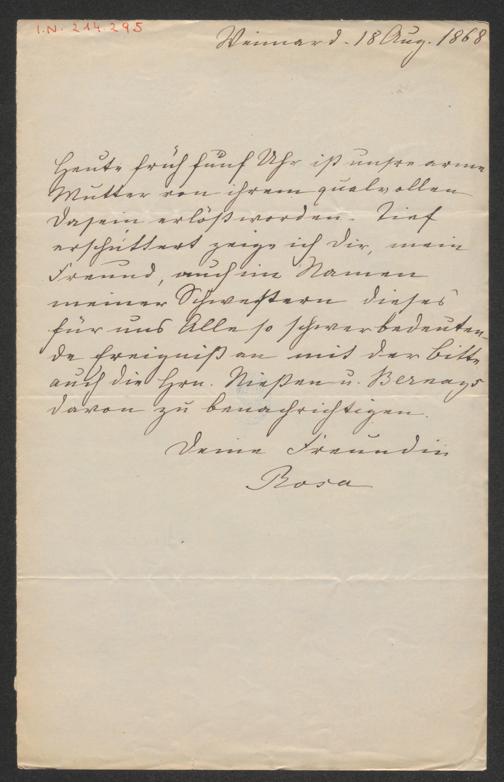 I.N. 214.295
Weimar d. 18 Aug. 1868
Heute früh fünf Uhr ist unsre arme
Mutter von ihrem qualvollen
Dasein erlöst worden. Tief
erschüttert zeige ich Dir, mein
Freund, auch im Namen
meiner Schwestern dieses
für uns Alle so schwer bedeuten-
de Ereigniß an mit der Bitte
auch die Hrn. Nießen u. Bernays
davon zu benachrichtigen.
Deine Freundin
Rosa